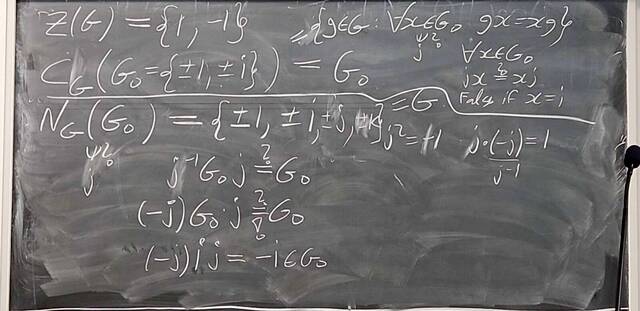 Z(G) = {1, -1} = {g∈G : ∀x∈G₀ gx=xg}
j ∀x∈G₀
C_G(G₀={±1, ±i}) = G₀ jx ≟ xj
False if x=i
N_G(G₀) = {±1, ±i, ±j, ±k} = G
j² = -1 j·(-j) = 1
j j⁻¹G₀j ≟ G₀ j⁻¹
(-j)G₀·j ≟ G₀
(-j)ij = -i∈G₀